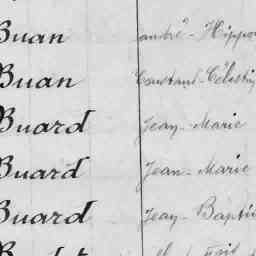 Buan André-Hippo
Buan Constant-Célestin
Buard Jean-Marie
Buard Jean-Marie
Buard Jean-Bapti